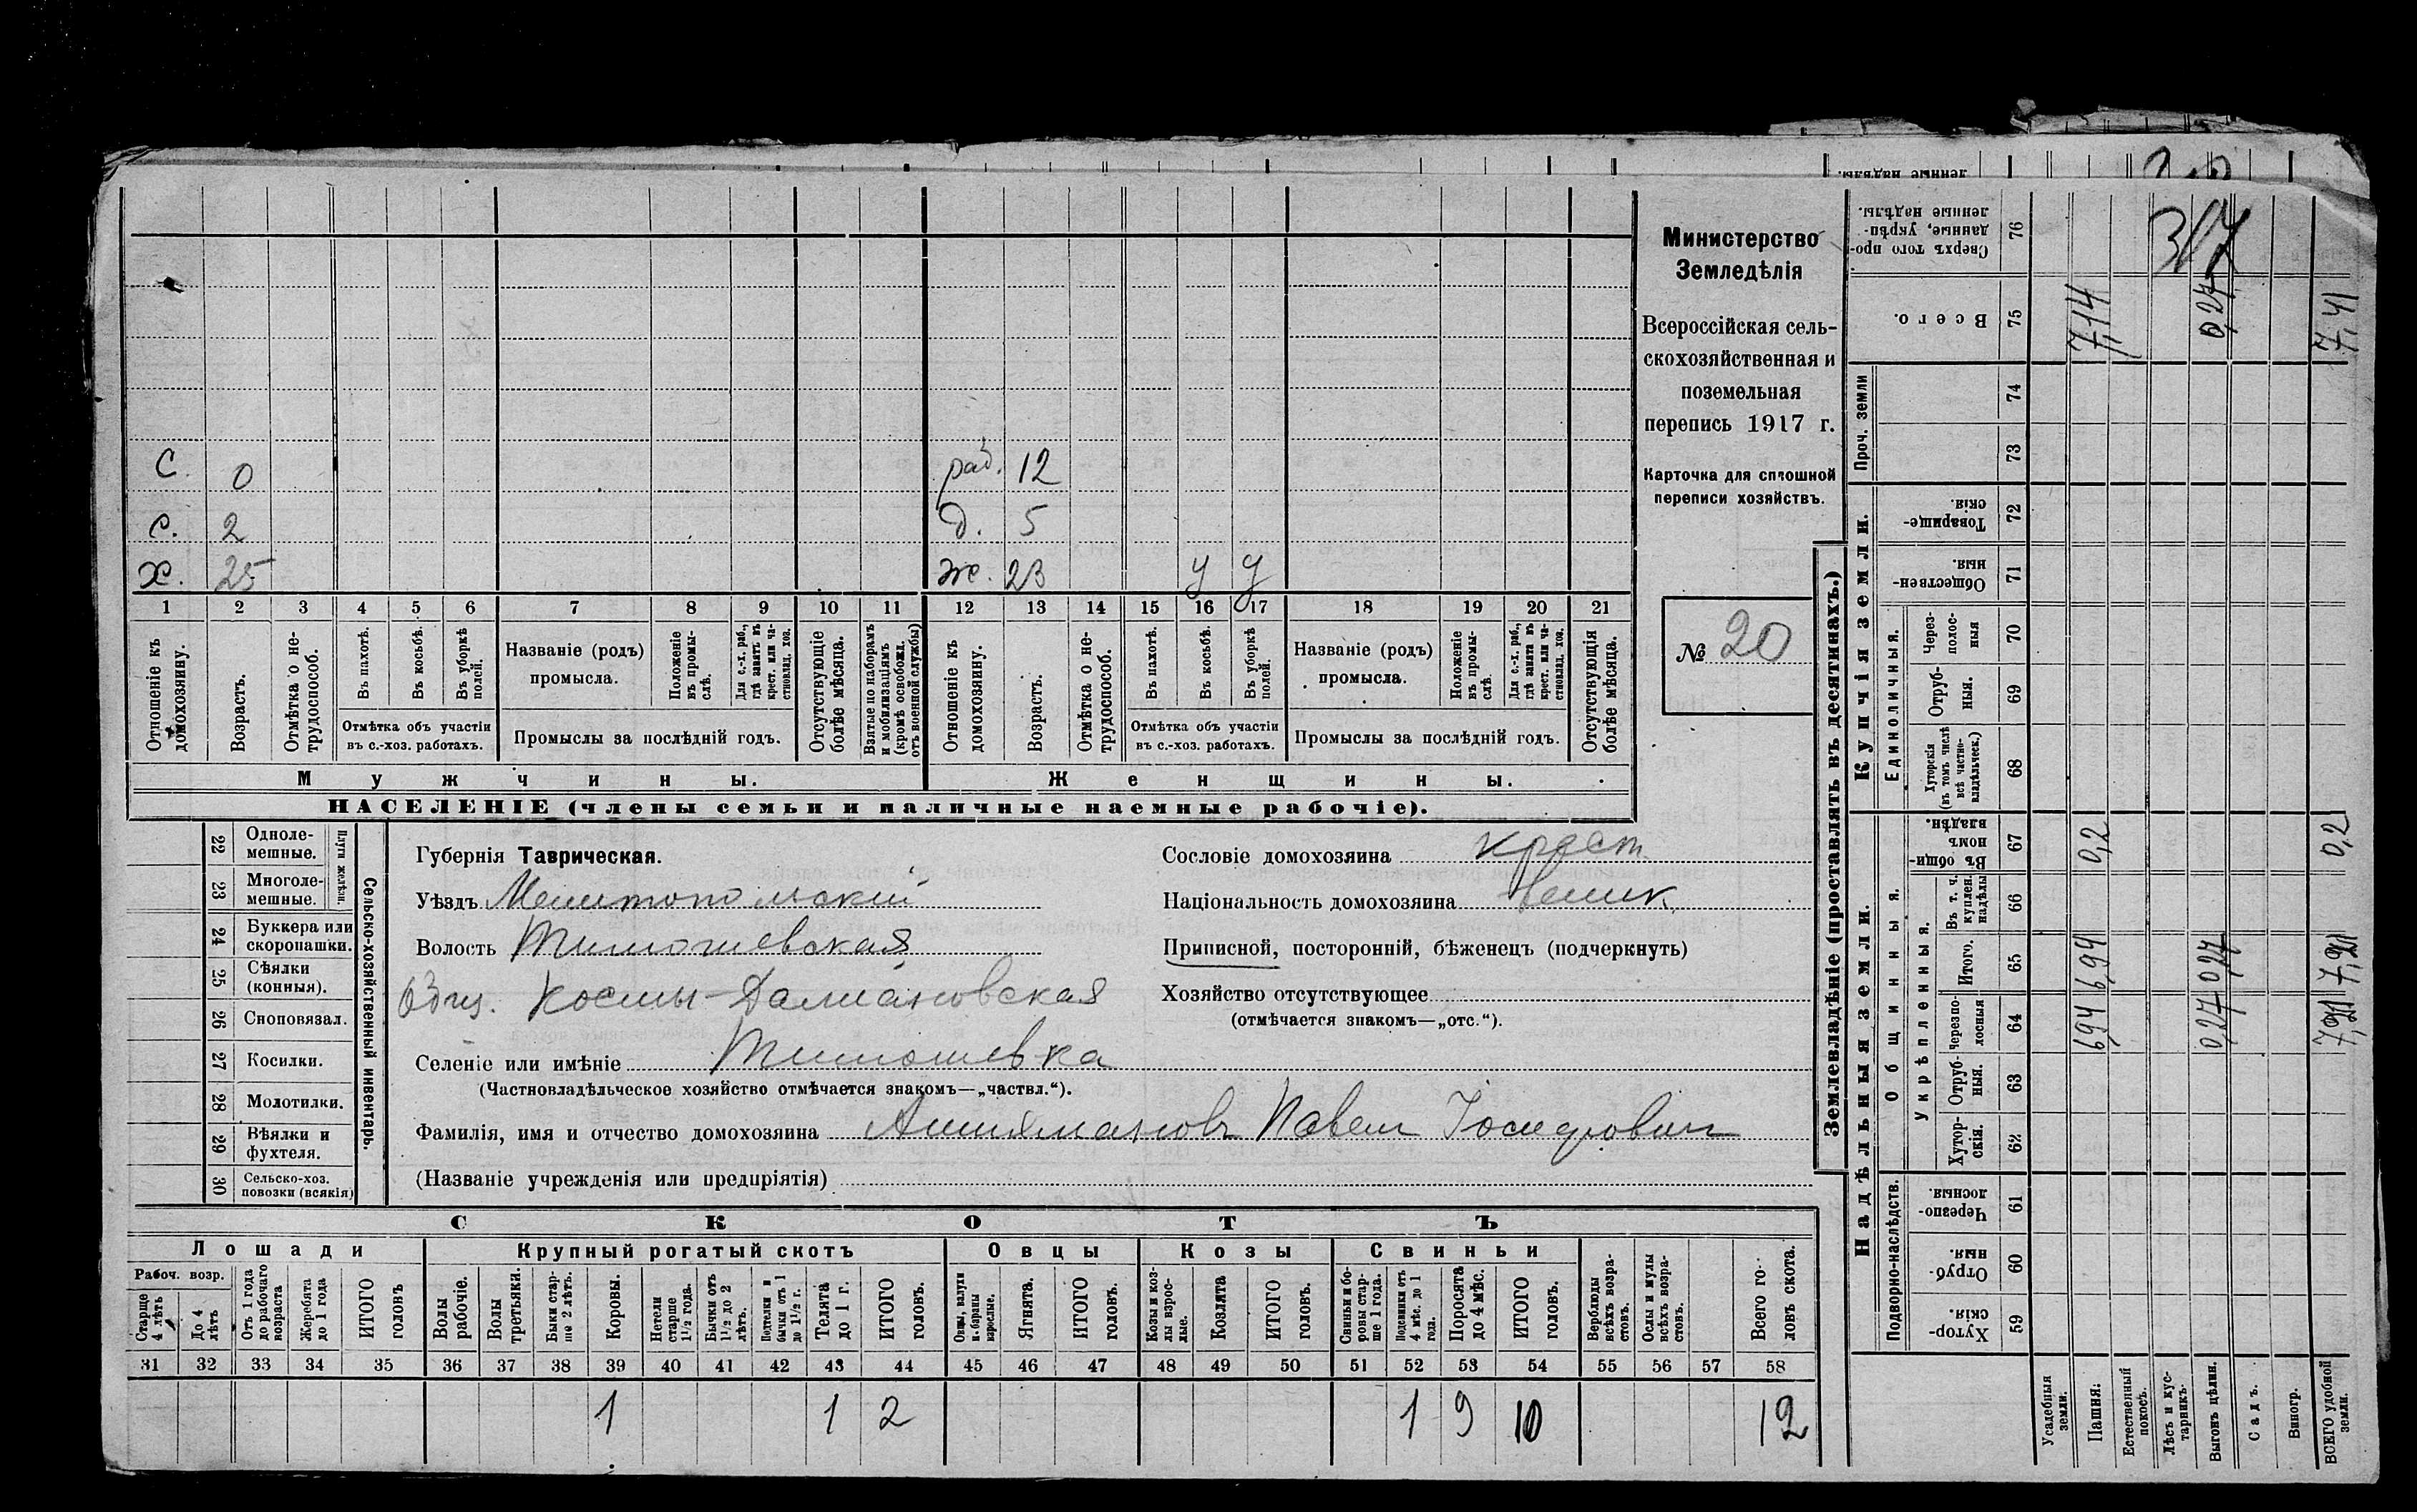 С. 0 раб. 12
с. 2 д. 5
х. 25 же. 23 у у
1 2 3 4 5 6 7 8 9 10 11 12 13 14 15 16 17 18 19 20 21
Отношеніе къ домохозяину.
Возрастъ.
Отмѣтка о не-
трудоспособ.
Въ пахотѣ.
Въ косьбѣ.
Въ уборкѣ
полей.
Отмѣтка объ участіи
въ с.-хоз. работахъ.
Названіе (родъ)
промысла.
Положеніе
въ промы-
слѣ.
Для с.-х. раб.,
гдѣ занятъ въ
крест. или ча-
стновлад. хоз.
Промыслы за послѣдній годъ.
Отсутствующіе
болѣе мѣсяца.
Взятые по наборамъ
и мобилизаціямъ
(кромѣ освобожд.
отъ военной службы)
Отношеніе къ
домохозяину.
Возрастъ.
Отмѣтка о не-
трудоспособ.
Въ пахотѣ.
Въ косьбѣ.
Въ уборкѣ
полей.
Отмѣтка объ участіи
въ с.-хоз. работахъ.
Названіе (родъ)
промысла.
Положеніе
въ промы-
слѣ.
Для с.-х. раб.,
гдѣ занята въ
крест. или ча-
стновлад. хоз.
Промыслы за послѣдній годъ.
Отсутствующія
болѣе мѣсяца.
Мужчины.
Женщины.
НАСЕЛЕНІЕ (члены семьи и наличные наемные рабочіе).
Министерство
Земледѣлія
Всероссійская сель-
скохозяйственная и
поземельная
перепись 1917 г.
Карточка для сплошной
переписи хозяйствъ.
№ 20
22 Одноле-
мешные.
23 Многоле-
мешные.
Плуги желѣзн.
24 Буккера или
скоропашки.
25 Сѣялки
(конныя).
26 Сноповязал.
27 Косилки.
28 Молотилки.
29 Вѣялки и
фухтеля.
30 Сельско-хоз.
повозки (всякія)
Сельско-хозяйственный инвентарь.
Губернія Таврическая.
Уѣздъ Мелитопольскій
Волость Тимошевская
Общ. Космы-Дамиановская
Селеніе или имѣніе Тимошевка
(Частновладѣльческое хозяйство отмѣчается знакомъ—„частвл.“).
Фамилія, имя и отчество домохозяина Павел Іосифович
(Названіе учрежденія или предпріятія)
Сословіе домохозяина крест.
Національность домохозяина велик.
Приписной, посторонній, бѣженецъ (подчеркнуть)
Хозяйство отсутствующее
(отмѣчается знакомъ—„отс.“).
СКОТЪ
Лошади
Рабоч. возр.
Старше
4 лѣтъ
До 4
лѣтъ
Отъ 1 года
до рабочаго
возраста
Жеребята
до 1 года
ИТОГО
головъ
Крупный рогатый скотъ
Волы
рабочіе.
Волы
третьяки.
Быки стар-
ше 2 лѣтъ.
Коровы.
Нетели
старше
1½ года.
Бычки отъ
1½ до 2
лѣтъ.
Телки и
бычки отъ 1
до 1½ г.
Телята
до 1 г.
ИТОГО
головъ.
Овцы
Овцы, валухи
и бараны
взрослые.
Ягнята.
ИТОГО
головъ.
Козы
Козы и коз-
лы взрос-
лые.
Козлята
ИТОГО
головъ.
Свиньи
Свиньи и бо-
ровы стар-
ше 1 года.
Подсвинки отъ
4 мѣс. до 1
года.
Поросята
до 4 мѣс.
ИТОГО
головъ.
Верблюды
всѣхъ возра-
стовъ.
Ослы и мулы
всѣхъ возра-
стовъ.
Всего го-
ловъ скота.
31 32 33 34 35 36 37 38 39 40 41 42 43 44 45 46 47 48 49 50 51 52 53 54 55 56 57 58
1 1 2 1 9 10 12
Землевладѣніе (проставлять въ десятинахъ.)
Купчія земли.
Надѣльныя земли.
Проч. земли
Единоличныя.
Общинныя.
Укрѣпленныя.
Подворно-наслѣдств.
Сверхъ того про-
данные, укрѣп-
ленные надѣлы. 76 307
Всего. 75 7,14 0,27 7,41
74
73
Товарище-
скія. 72
Обществен-
ныя. 71
Через-
полос-
ныя 70
Отруб-
ныя. 69
Хуторскія
(въ томъ числѣ
всѣ частно-
владѣльческ.) 68
Въ общин-
номъ
владѣн. 67 0,2 0,2
Въ т. ч.
куплен.
надѣлы 66
Итого. 65 6,94 0,27 7,21
Черезпо-
лосныя 64 6,94 0,27 7,21
Отруб-
ныя. 63
Хутор-
скія. 62
Черезпо-
лосныя. 61
Отруб-
ныя. 60
Хутор-
скія. 59
Усадебныя
земли.
Пашня.
Естественный
покосъ.
Лѣсъ и кус-
тарникъ.
Выгонъ цѣлин.
Садъ.
Виногр.
ВСЕГО удобной
земли.